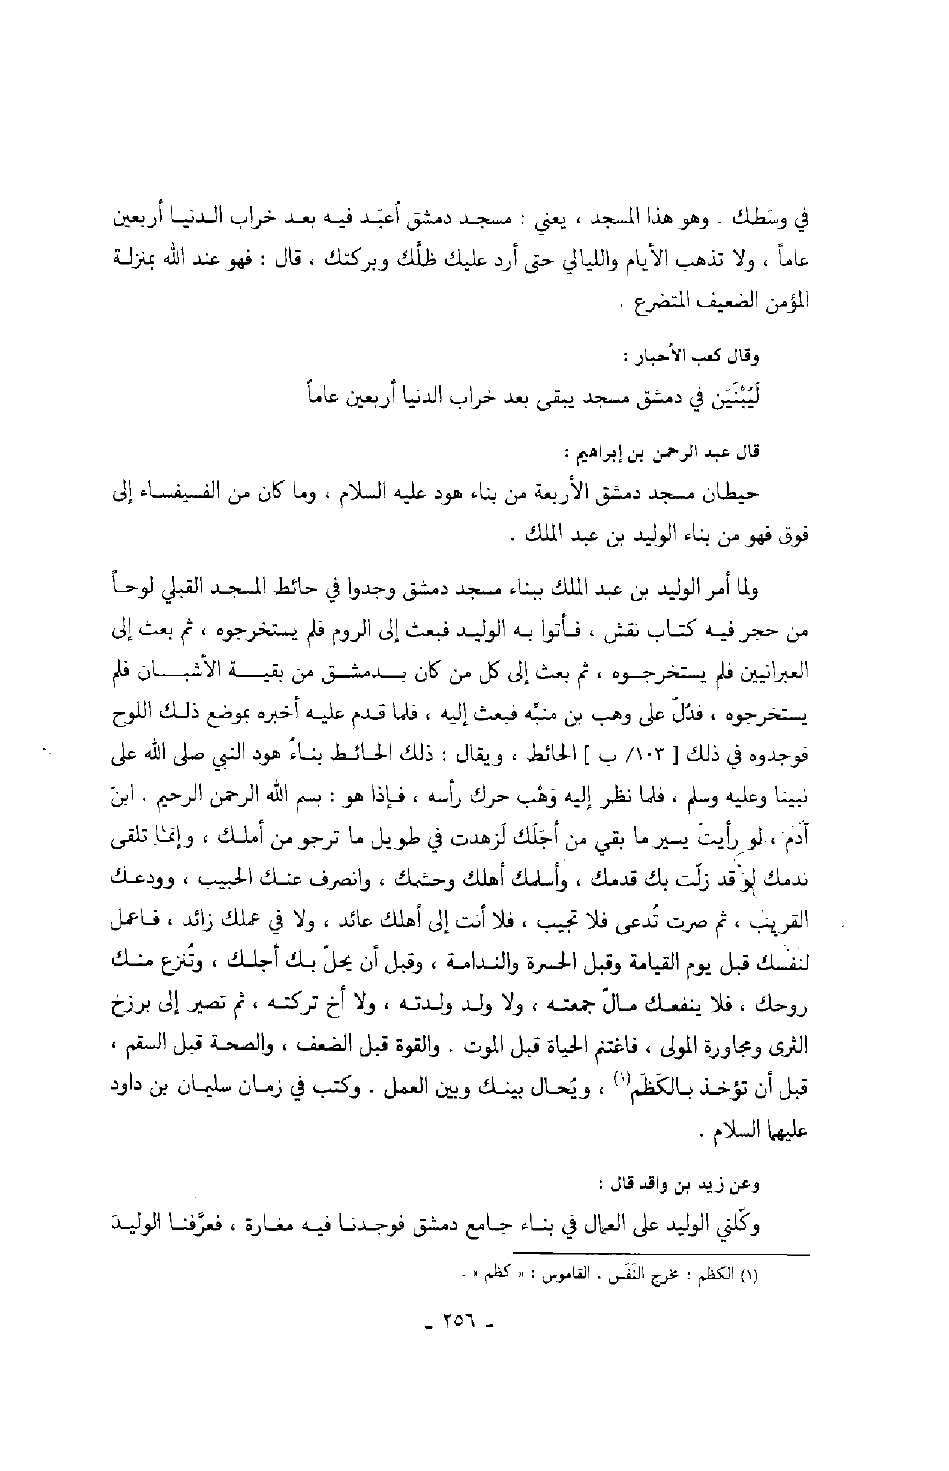 في وسَطك . وهو هذا المسجد ، يعني : مسجد دمشق أُعبَد فيه بعد خراب الدنيا أربعين
عاماً ، ولا تذهب الأيام والليالي حتى أرد عليك ظلّك وبركتك ، قال : فهو عند الله بمنزلة
المؤمن الضعيف المتضرع .
وقال كعب الأحبار :
لَيُبْنَيَن في دمشق مسجد يبقى بعد خراب الدنيا أربعين عاماً
قال عبد الرحمن بن إبراهيم :
حيطان مسجد دمشق الأربعة من بناء هود عليه السلام ، وما كان من الفسيفساء إلى
فوق فهو من بناء الوليد بن عبد الملك .
ولما أمر الوليد بن عبد الملك ببناء مسجد دمشق وجدوا في حائط المسجد القبلي لوحاً
من حجر فيه كتاب نقش ، فأتوا به الوليد فبعث إلى الروم فلم يستخرجوه ، ثم بعث إلى
العبرانيين فلم يستخرجوه ، ثم بعث إلى كل من كان بدمشق من بقية الأشبان فلم
يستخرجوه ، فدُلّ على وهب بن منبّه فبعث إليه ، فلما قدم عليه أخبره بموضع ذلك اللوح
فوجدوه في ذلك [ ١٠٣/ ب ] الحائط ، ويقال : ذلك الحائط بناءُ هود النبي صلى الله على
نبينا وعليه وسلم ، فلما نظر إليه وَهْب حرك رأسه ، فإذا هو : بسم الله الرحمن الرحيم . ابنَ
آدم ، لو رأيتَ يسير ما بقي من أجَلك لزهدت في طويل ما ترجو من أملك ، وإنما تلقى
ندمك لو قد زلّت بك قدمك ، وأسلمك أهلك وحشمك ، وانصرف عنك الحبيب ، وودعك
القريب ، ثم صرت تُدعى فلا تجيب ، فلا أنت إلى أهلك عائد ، ولا في عملك زائد ، فاعمل
لنفسك قبل يوم القيامة وقبل الحسرة والندامة ، وقبل أن يحلّ بك أجلك ، وتُنزع منك
روحك ، فلا ينفعك مالٌ جمعته ، ولا ولد ولدته ، ولا أخ تركته ، ثم تصير إلى برزخ
الثرى ومجاورة الموتى ، فاغتنم الحياة قبل الموت . والقوة قبل الضعف ، والصحة قبل السقم ،
قبل أن تؤخذ بالكَظَم(١) ، ويُحال بينك وبين العمل . وكتب في زمان سليمان بن داود
عليهما السلام .
وعن زيد بن واقد قال :
وكّلني الوليد على العمال في بناء جامع دمشق فوجدنا فيه مغارة ، فعرّفنا الوليدَ
(١) الكظم : مخرج النَّفَس . القاموس : « كظم » .
ـ ٢٥٦ ـ